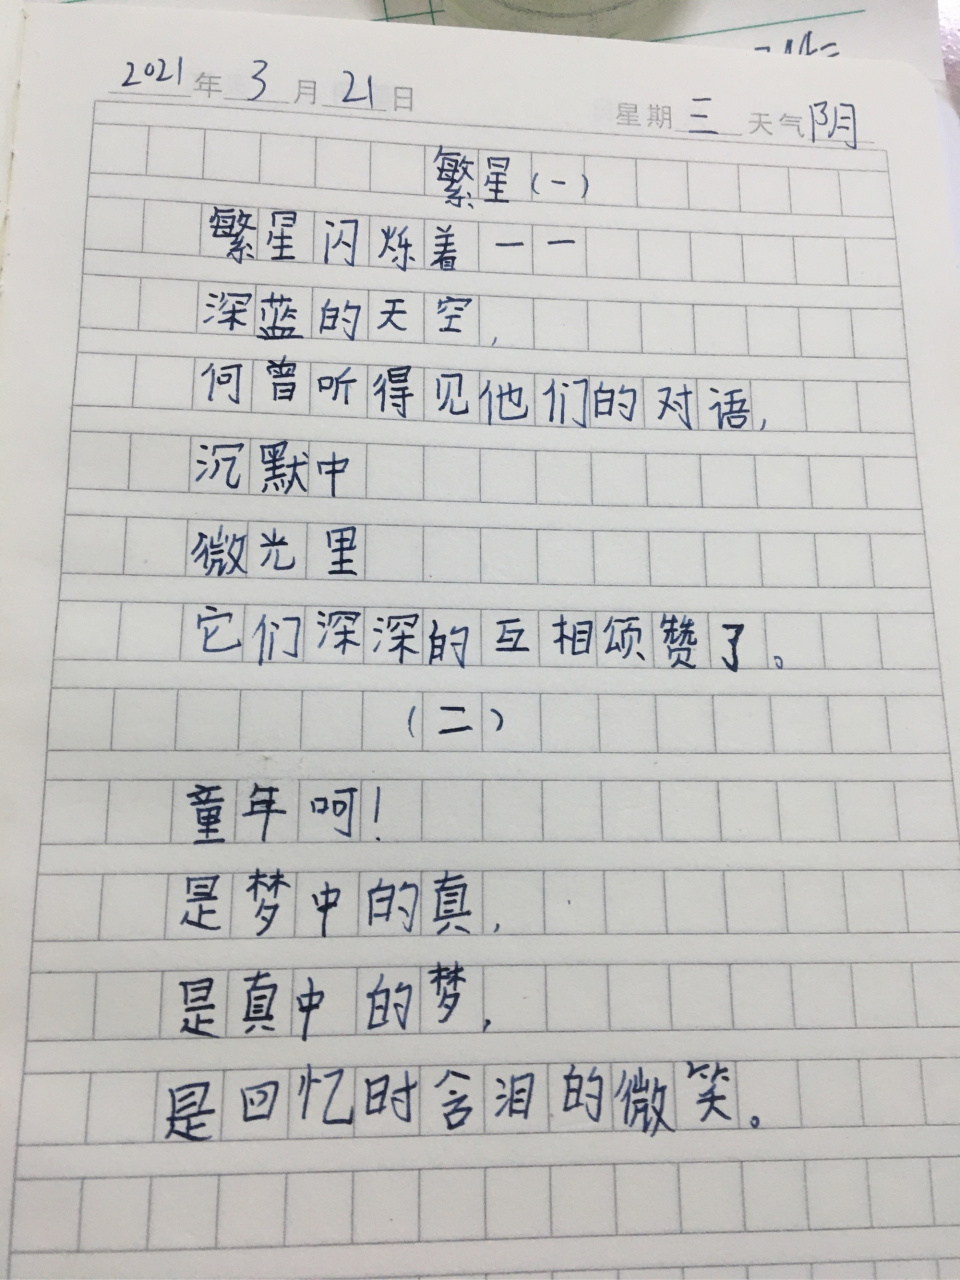 2021年3月21日 星期三 天气阴
繁星(一)
繁星闪烁着一一
深蓝的天空,
何曾听得见他们的对语,
沉默中
微光里
它们深深的互相颂赞了。
(二)
童年呵!
是梦中的真,
是真中的梦,
是回忆时含泪的微笑。